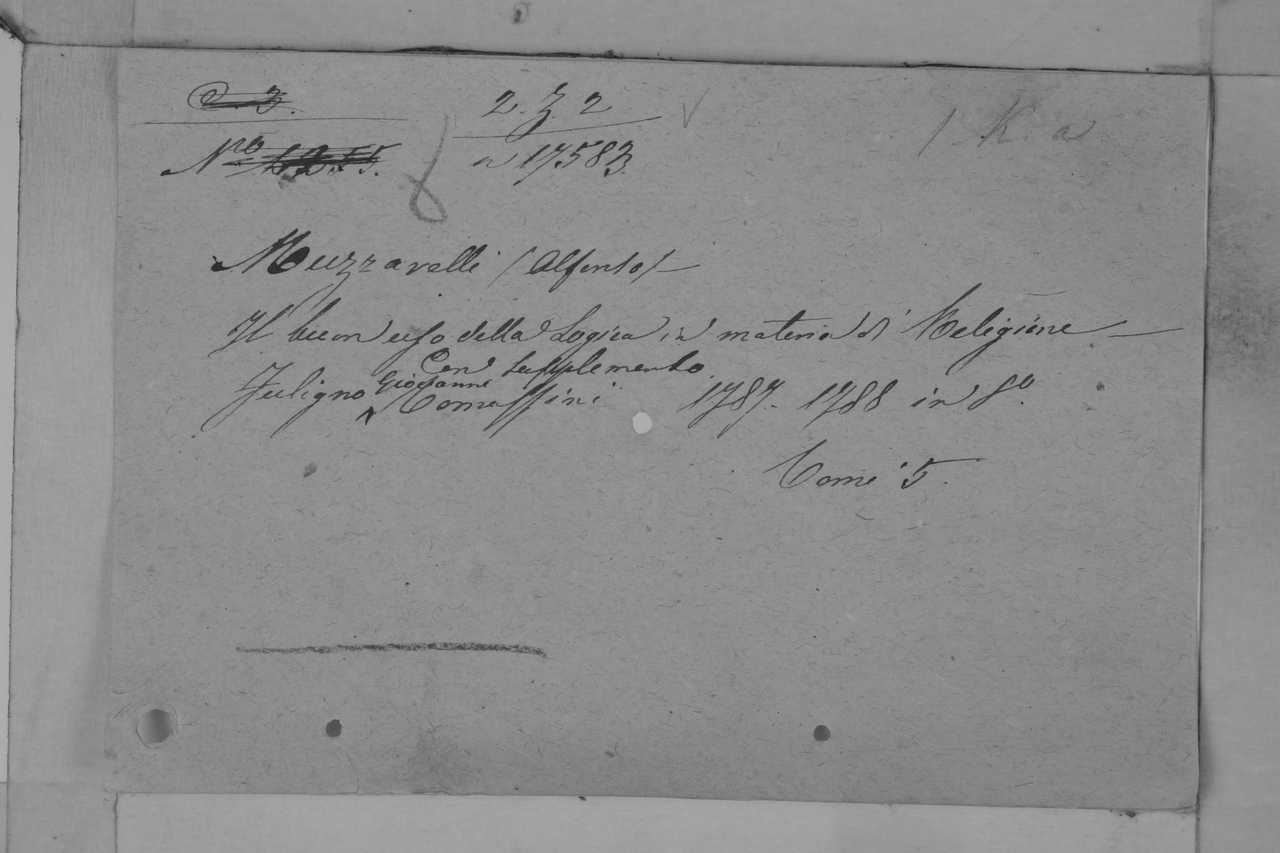 2. Z. 2 1 K. a
Nro a 17583
Muzzarelli (Alfonso)
Il buon uso della Logica in materia di Religione
Con supplemento
Fuligno Giovanni Tomassini 1787. 1788 in 8o.
Tomi 5.